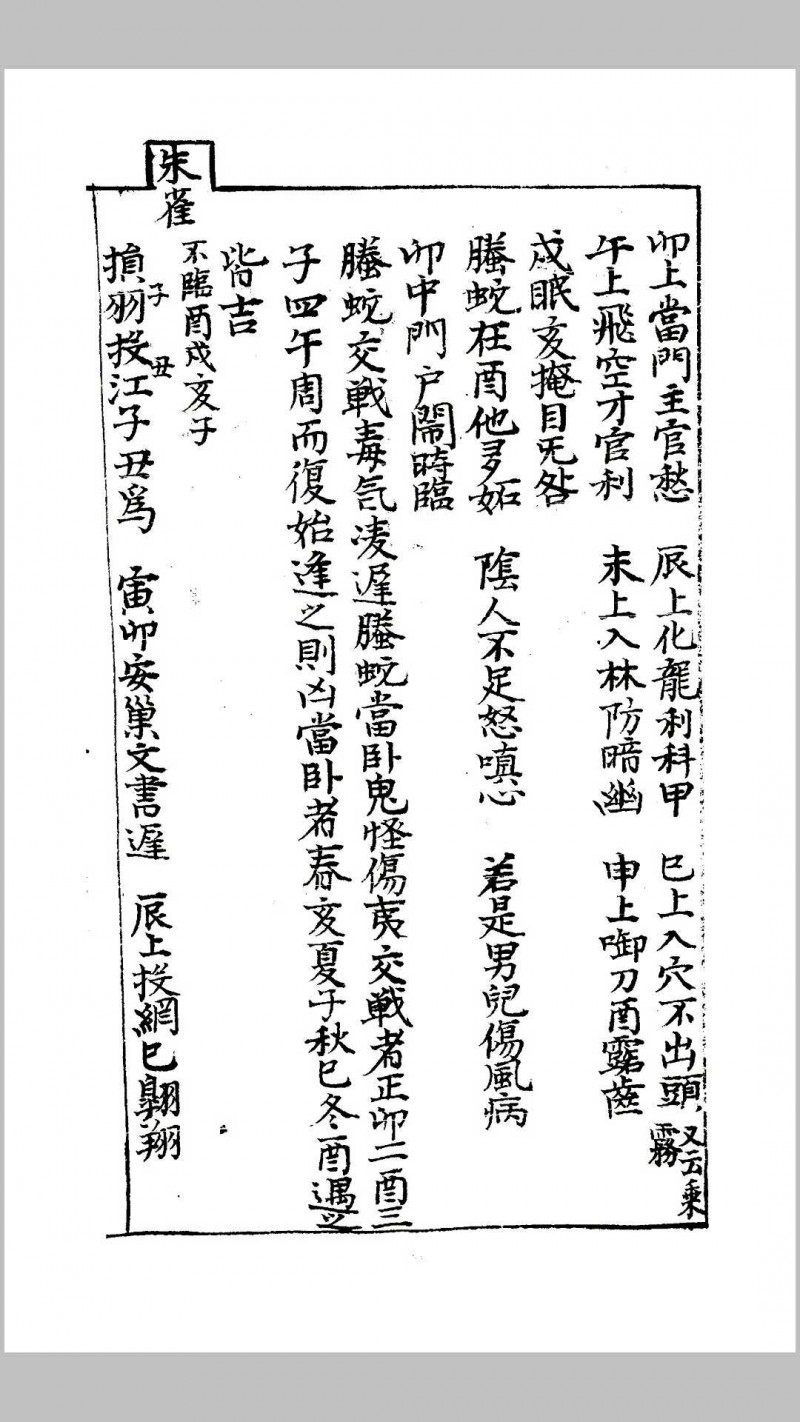 卯上當門主官愁 辰上化龍利科甲 巳上入穴不出頭 又云乘霧
午上飛空才官利 未上入林防暗幽 申上啣刀酉露齒
戌眠亥掩目无咎
螣蛇在酉他多妬 陰人不足怒嗔心 若是男兒傷風病
卯中門户鬧時臨
螣蛇交戦毒氣凌遲螣蛇當卧鬼怪傷夷交戦者正卯二酉三
子四午周而復始逢之則凶當卧者春亥夏子秋巳冬酉遇之
皆吉
朱雀
不臨酉戌亥子
子 丑
損羽投江子丑為 寅卯安巢文書遲 辰上投網巳翱翔